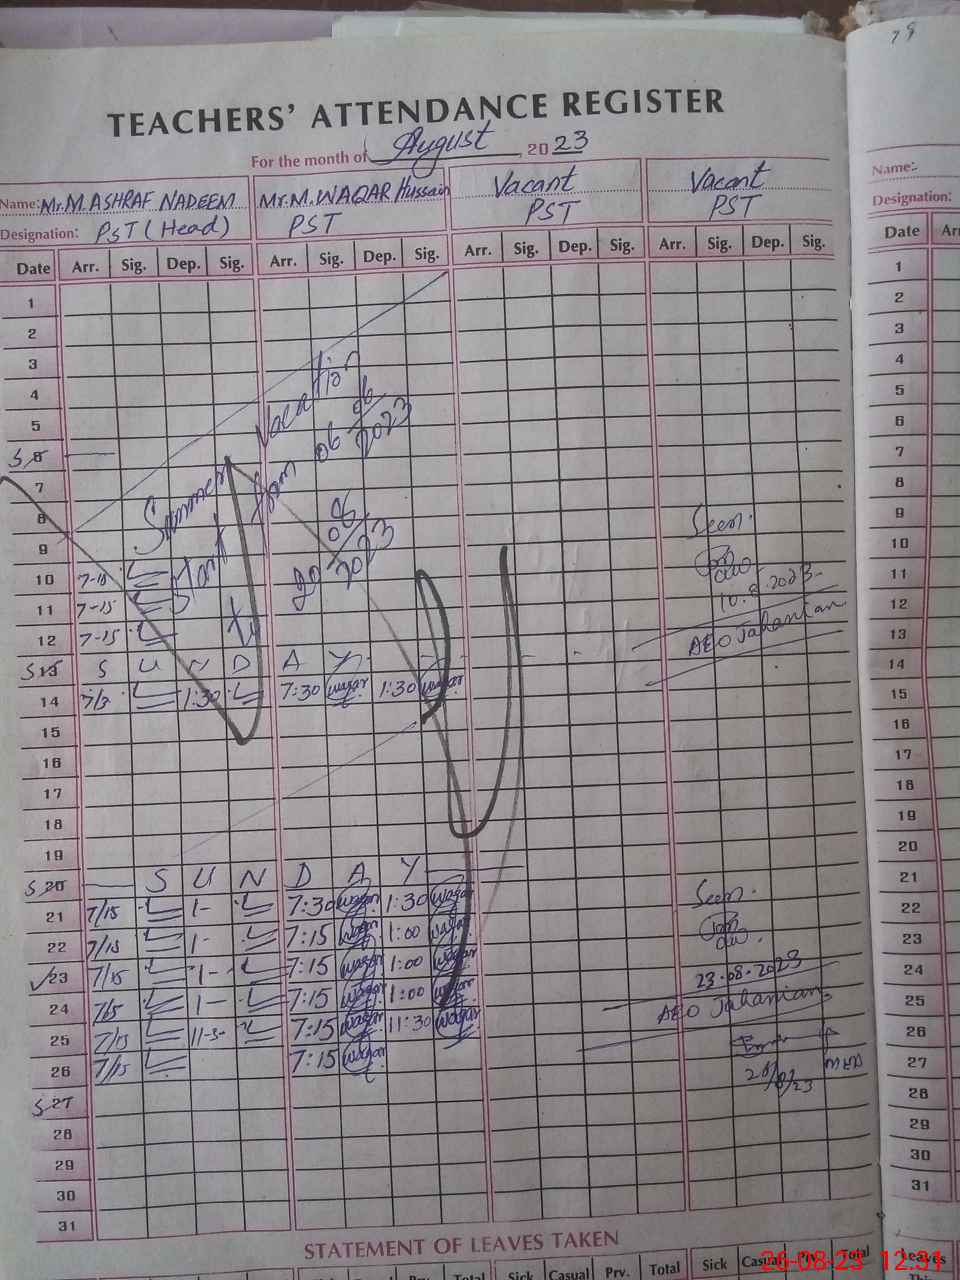 79
TEACHERS' ATTENDANCE REGISTER
For the month of August, 2023
Name: Mr. M. ASHRAF NADEEM Mr. M. WAQAR Hussain Vacant Vacant
Designation: PST (Head) PST PST PST
Name:
Designation:
Date Arr. Sig. Dep. Sig. Arr. Sig. Dep. Sig. Arr. Sig. Dep. Sig. Arr. Sig. Dep. Sig.
Date
1
2
3
4
5
S 6
7
8
9
10 7-15
11 7-15
12 7-15
S 13 S U N D A Y
14 1:30 7:30 waqar 1:30 waqar
15
16
17
18
19
S 20 S U N D A Y
21 7/15 1- 7:30 waqar 1:30 waqar
22 7/15 1- 7:15 waqar 1:00 waqar
23 7/15 1- 7:15 waqar 1:00 waqar
24 7/15 1- 7:15 waqar 1:00 waqar
25 7/15 11-30 7:15 waqar 11:30 waqar
26 7/15 7:15 waqar
S 27
28
29
30
31
Summer Vacation
Start from 06/06/2023
to 20/08/2023
Seen.
10.8.2023
AEO Jahanian
Seen.
23.08.2023
AEO Jahanian
1
2
3
4
5
6
7
8
9
10
11
12
13
14
15
16
17
18
19
20
21
22
23
24
25
26
27
28
29
30
31
STATEMENT OF LEAVES TAKEN
Total Sick Casual Prv. Total Sick Casual Prv. Total
Leaves
26-08-23 12:31